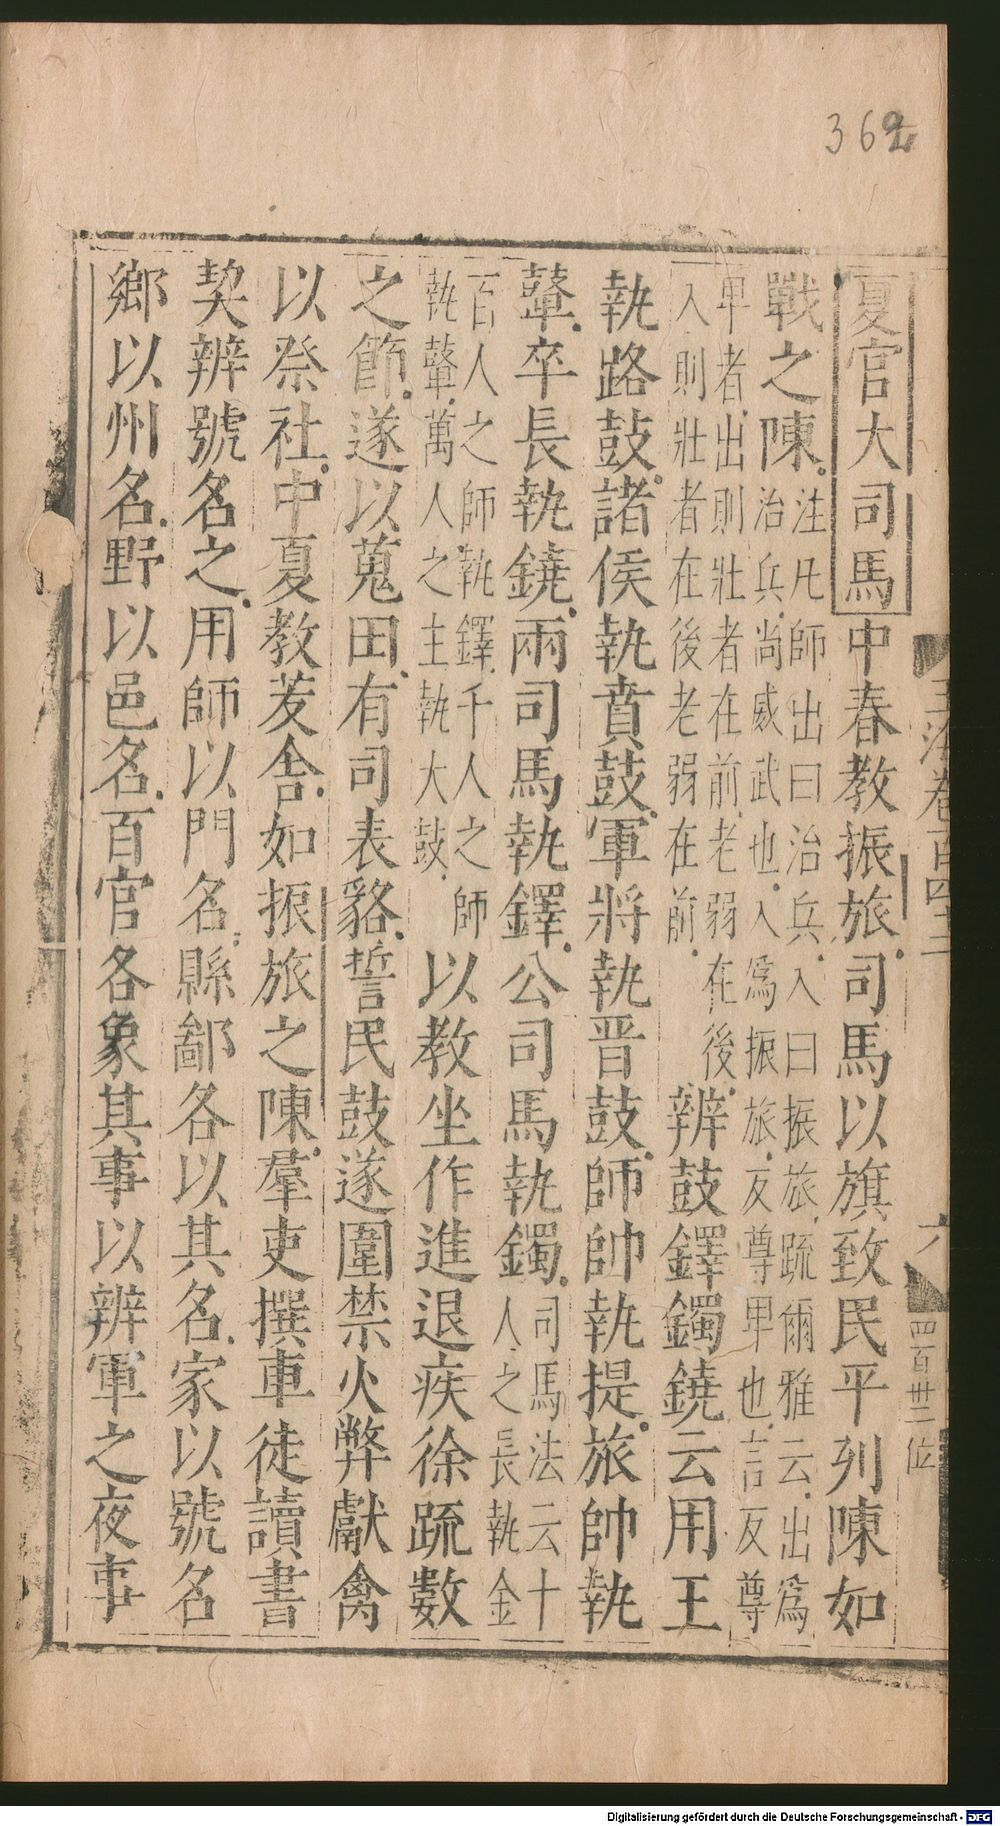 362
玉海卷百四十三
六
四百卅二位
夏官大司馬中春教振旅司馬以旗致民平列陳如
戰之陳注凡師出曰治兵入曰振旅疏爾雅云出爲
治兵尚威武也入爲振旅反尊卑也言反尊
卑者出則壯者在前老弱在後
入則壯者在後老弱在前辨鼓鐸鐲鐃云用王
執路鼓諸侯執賁鼓軍將執晉鼓師帥執提旅帥執
鼙卒長執鐃兩司馬執鐸公司馬執鐲司馬法云十
人之長執金
百人之師執鐸千人之師
執鼙萬人之主執大鼓以教坐作進退疾徐疏數
之節遂以蒐田有司表貉誓民鼓遂圍禁火弊獻禽
以祭社中夏教茇舍如振旅之陳羣吏撰車徒讀書
契辨號名之用師以門名縣鄙各以其名家以號名
鄉以州名野以邑名百官各象其事以辨軍之夜事
Digitalisierung gefördert durch die Deutsche Forschungsgemeinschaft - DFG